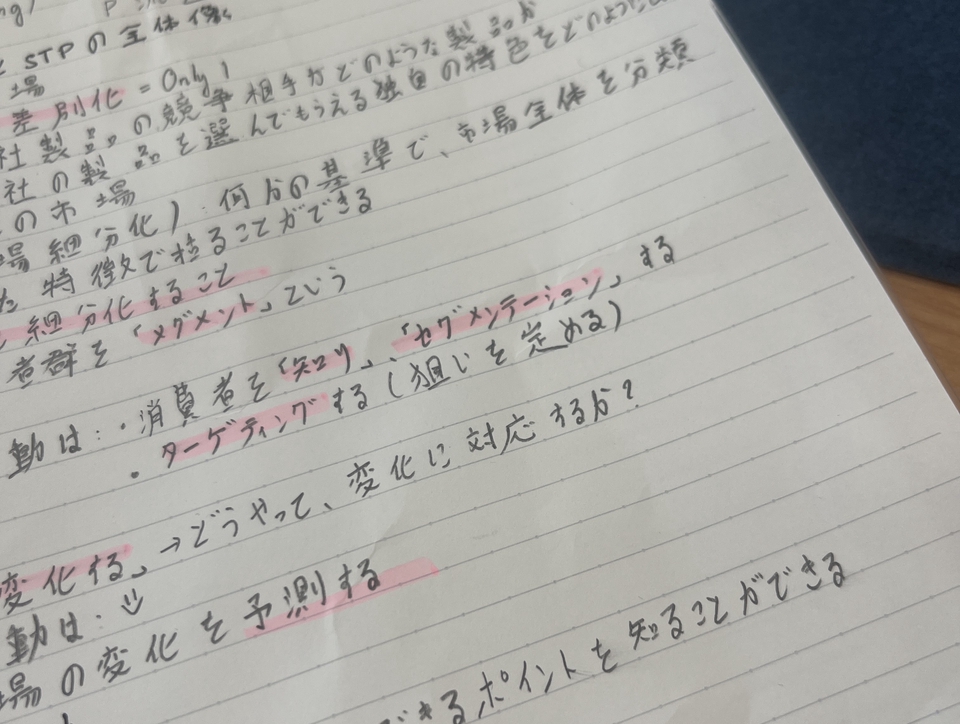 STPの全体像
場
差別化 = Only 1
社製品の競争相手がどのような製品が
社の製品を選んでもらえる独自の特色をどのように
の市場
場細分化）何らかの基準で、市場全体を分類
特徴で括ることができる
細分化すること
者群を「メグメント」という
動は：・消費者を「知り」、「セグメンテーション」する
・ターゲティングする（狙いを定める）
変化する」→どうやって、変化に対応するか？
動は：
場の変化を予測する
できるポイントを知ることができる